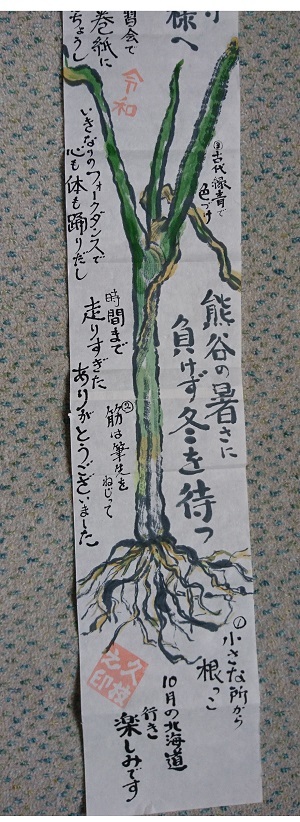 様へ
習会で
巻紙に
ちょうし
令和
③古代緑青で
色づけ
いきなりのフォークダンスで
心も体も踊りだし
熊谷の暑さに
負けず冬を待つ
時間まで
走りすぎた
ありがとうございました
②筋は筆先を
ねじって
①小さな所から
根っこ
10月の北海道
行き
楽しみです